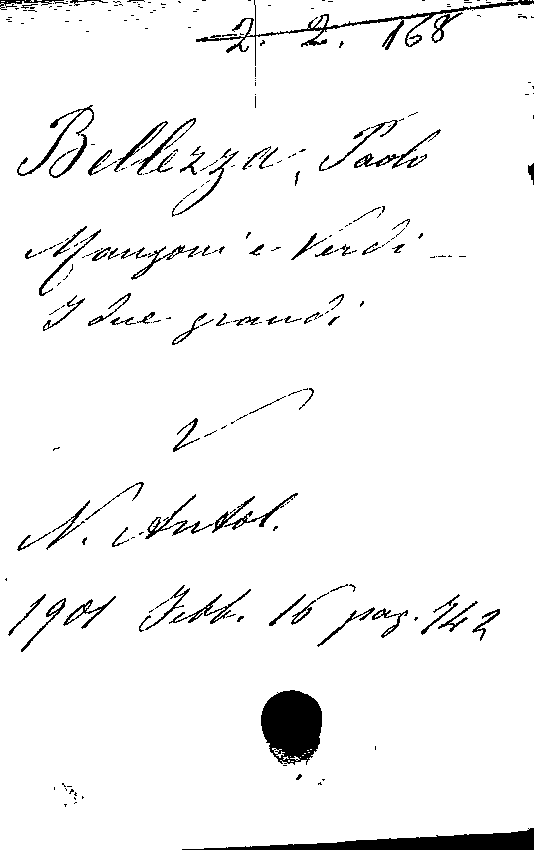 2. 2. 168
Bellezza, Paolo
Manzoni e Verdi —
I due grandi
V
N. Antol.
1901 Febb. 16 pag. 742